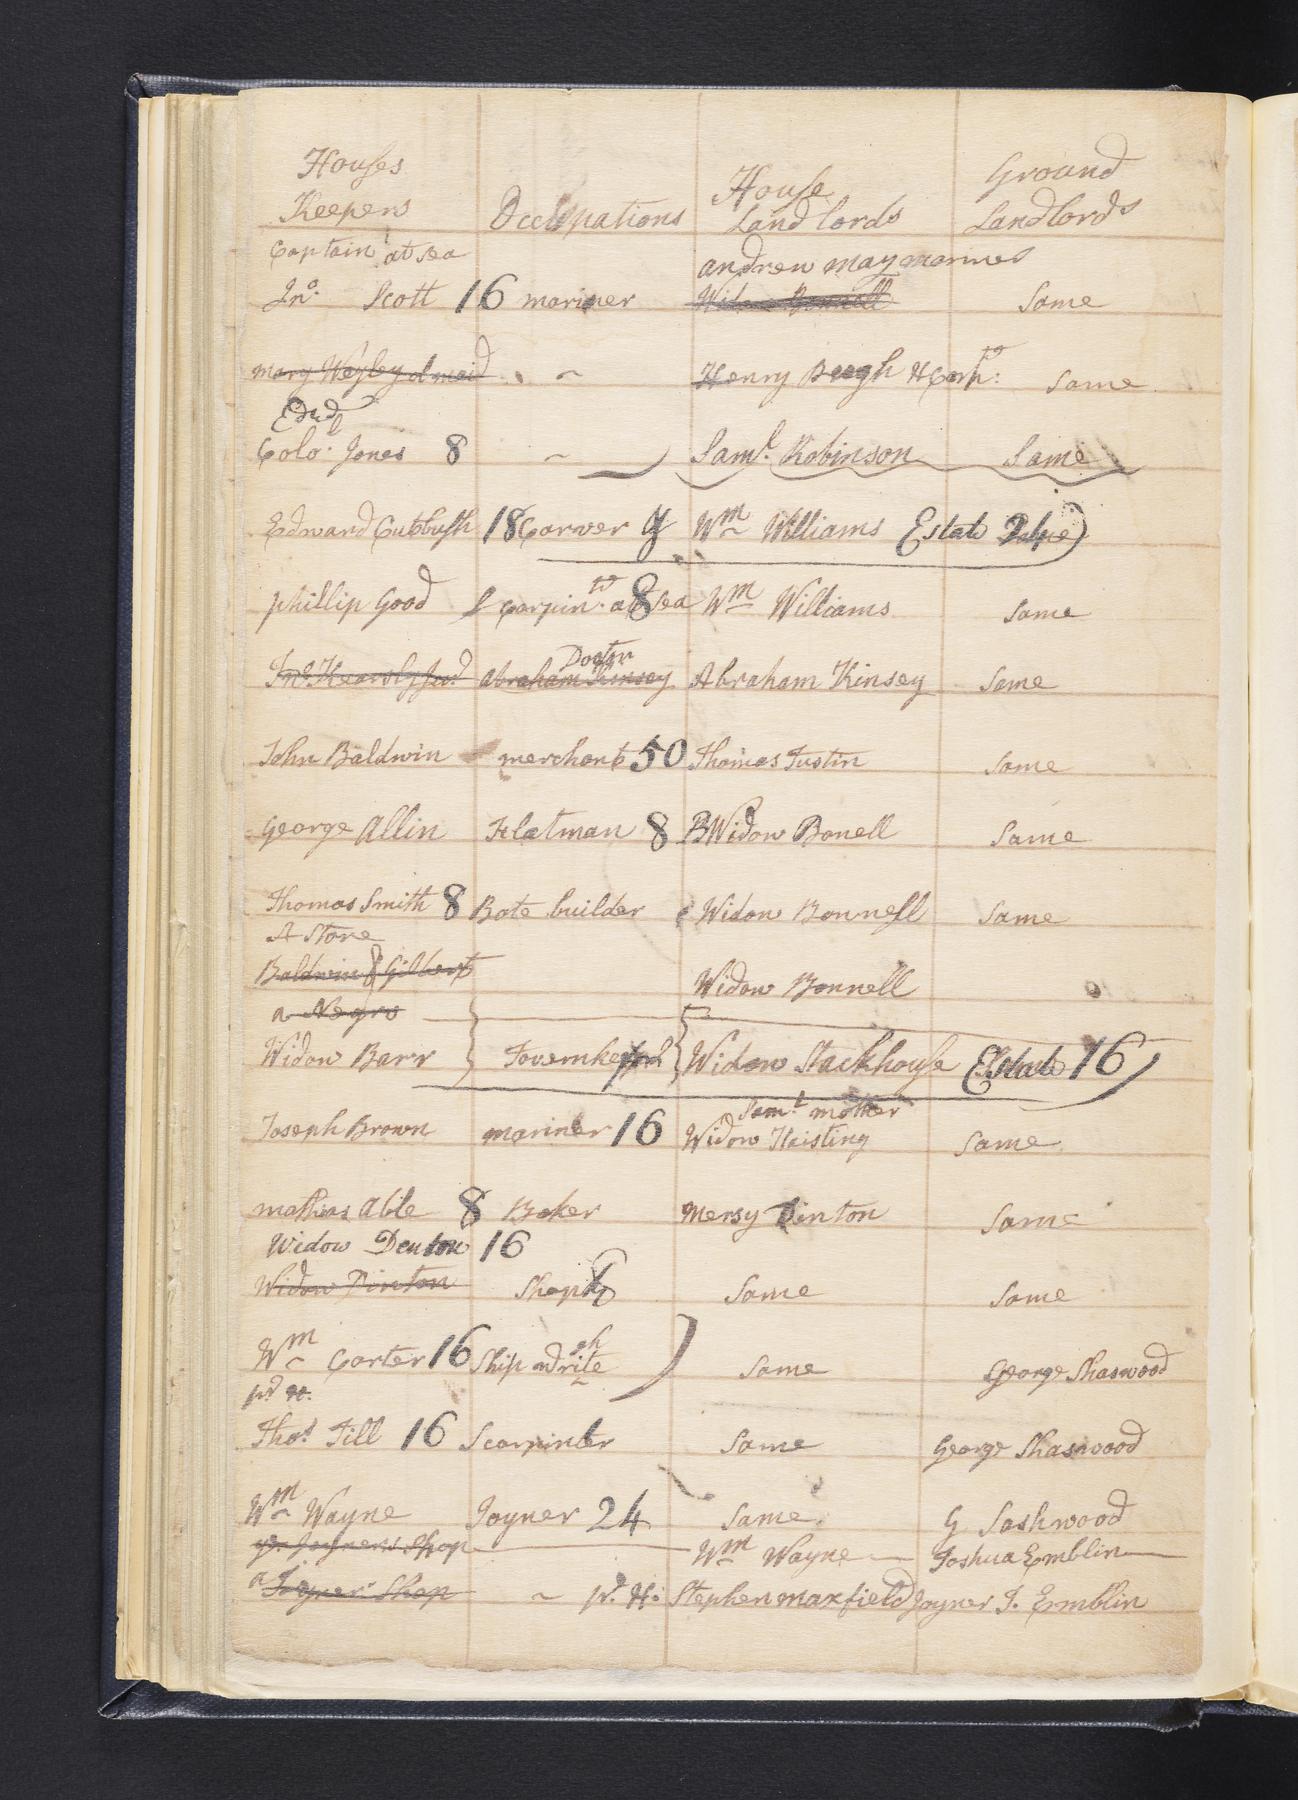 Houses
Keepers Occupations House Landlords Ground Landlords
Captain at sea andrew may mariner
Jno. Scott 16 mariner Widow Bonnell Same
mary Wayley ol maid ~ Henry Hcarptr: Same
Edwd
Colol. Jones 8 ~ Saml. Robinson Same
Edward Cutbush 18 Carver Wm Williams Estate 24
phillip Good Carpintr. at 8 Sea Wm Williams Same
Doctor
Jno. Kearsly Junr abraham Kinsey Abraham Kinsey Same
John Baldwin merchant 50 Thomas Tustin Same
George Allin Flatman 8 Widow Bonell Same
Thomas Smith 8 Bote builder Widow Bonnell Same
A Store
Baldwin & Gilbert Widow Bonnell
a Negro
Widow Barr Widow Stackhouse Estate 16
Saml mother
Joseph Brown mariner 16 Widow Haisting Same
mathias Able 8 Baker Mersy Dinton Same
Widow Denton 16
Widow Dinton Shop Same Same
Wm Carter 16 Ship wdrite Same George Shaswood
pd H.
Thos. Till 16 Scarpinter Same George Shaswood
Wm Wayne Joyner 24 Same G Sashwood
Joyners Shop Wm Wayne Joshua Emblin
a Joyner Shop ~ pd. H: Stephen maxfield Joyner J. Emblin